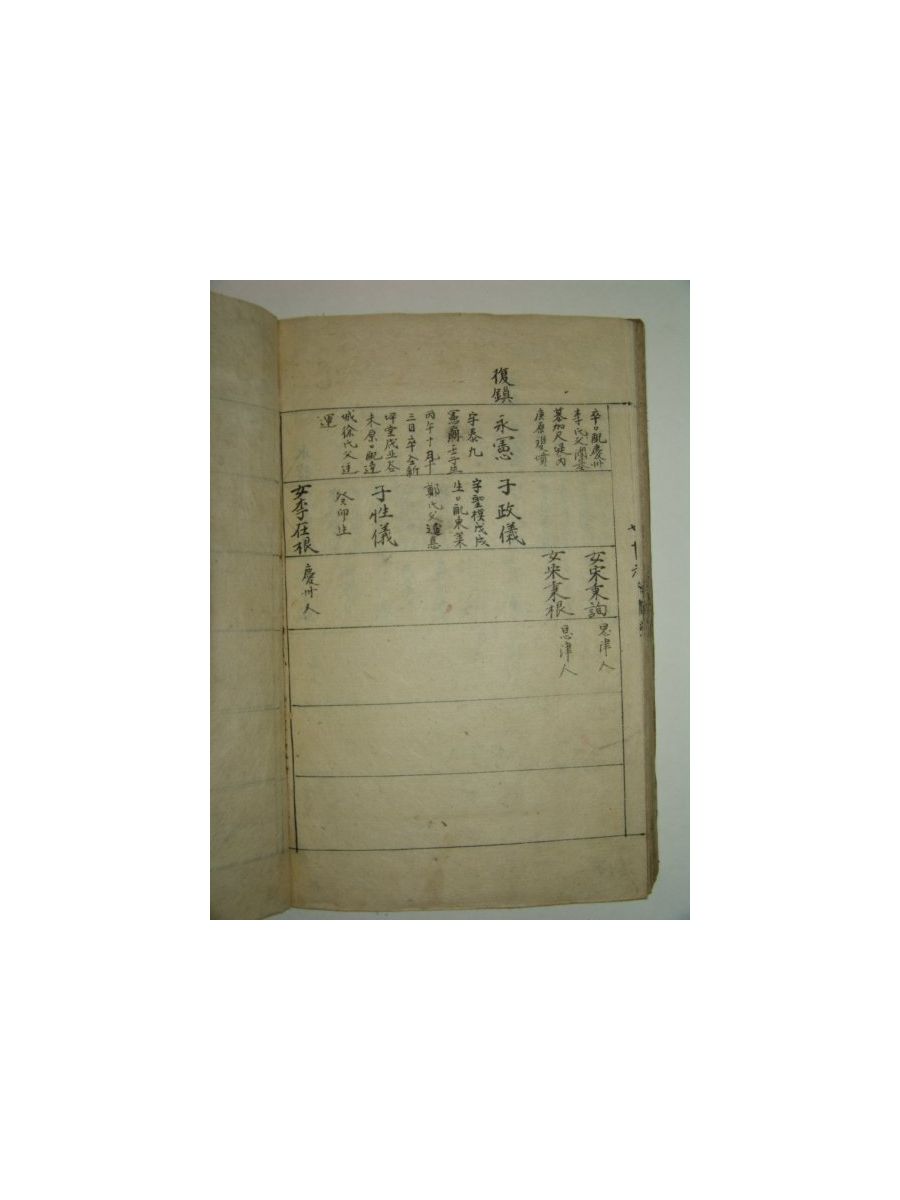 復鎮
卒口配慶州
李氏父
墓加尺
庚原雙墳
永憲
字泰九
憲爾壬子生
丙午十月十
三日卒全新
坪堂戌丑谷
未原口配達
城徐氏父廷
運
子政儀
字聖樸戊戌
生口配東萊
鄭氏父
子性儀
癸卯生
女李在根
女宋秉詢
女宋秉根
慶州人
恩津人
恩津人